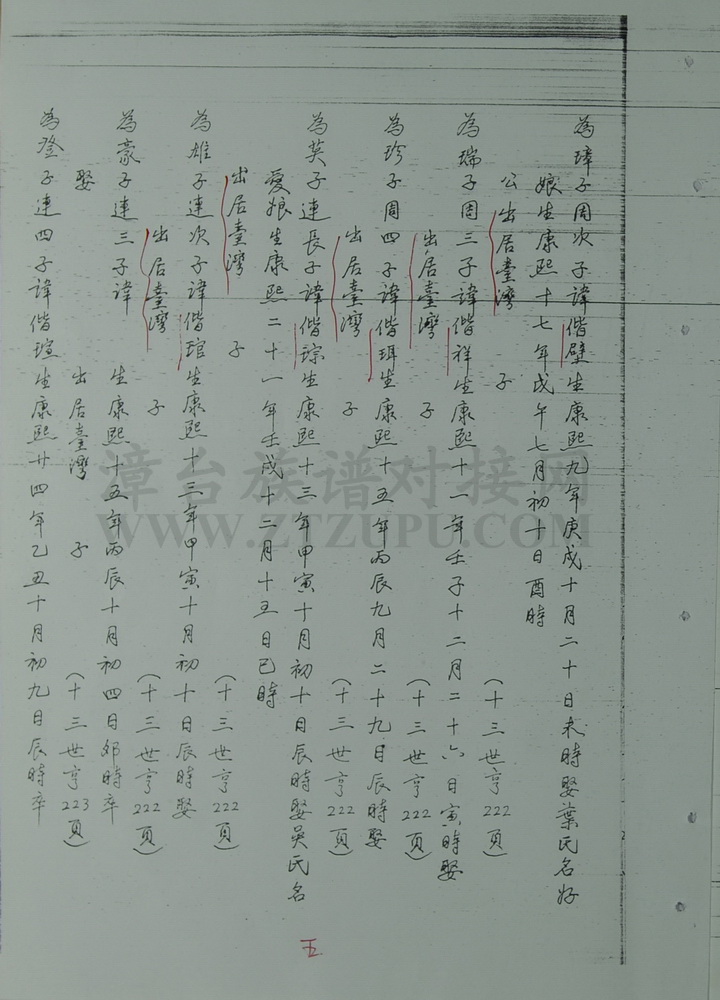 為璋子周次子諱偕壁生康熙九年庚戌十月二十日未時娶葉氏名好
娘生康熙十七年戊午七月初十日酉時
公出居臺灣 子 （十三世亨222頁）
為瑞子周三子諱偕祥生康熙十一年壬子十二月二十六日寅時娶
出居臺灣 子 （十三世亨222頁）
為珍子周四子諱偕珥生康熙十五年丙辰九月二十九日辰時娶
出居臺灣 子 （十三世亨222頁）
為英子連長子諱偕琮生康熙十三年甲寅十月初十日辰時娶吳氏名
愛娘生康熙二十一年壬戌十二月十五日巳時
出居臺灣 子 （十三世亨222頁）
為雄子連次子諱偕琯生康熙十三年甲寅十月初十日辰時娶
出居臺灣 子 （十三世亨222頁）
為豪子連三子諱 生康熙十五年丙辰十月初四日卯時卒
娶 出居臺灣 子 （十三世亨223頁）
為登子連四子諱偕瑄生康熙廿四年乙丑十月初九日辰時卒
五
漳台族谱对接网
WWW.ZTZUPU.COM